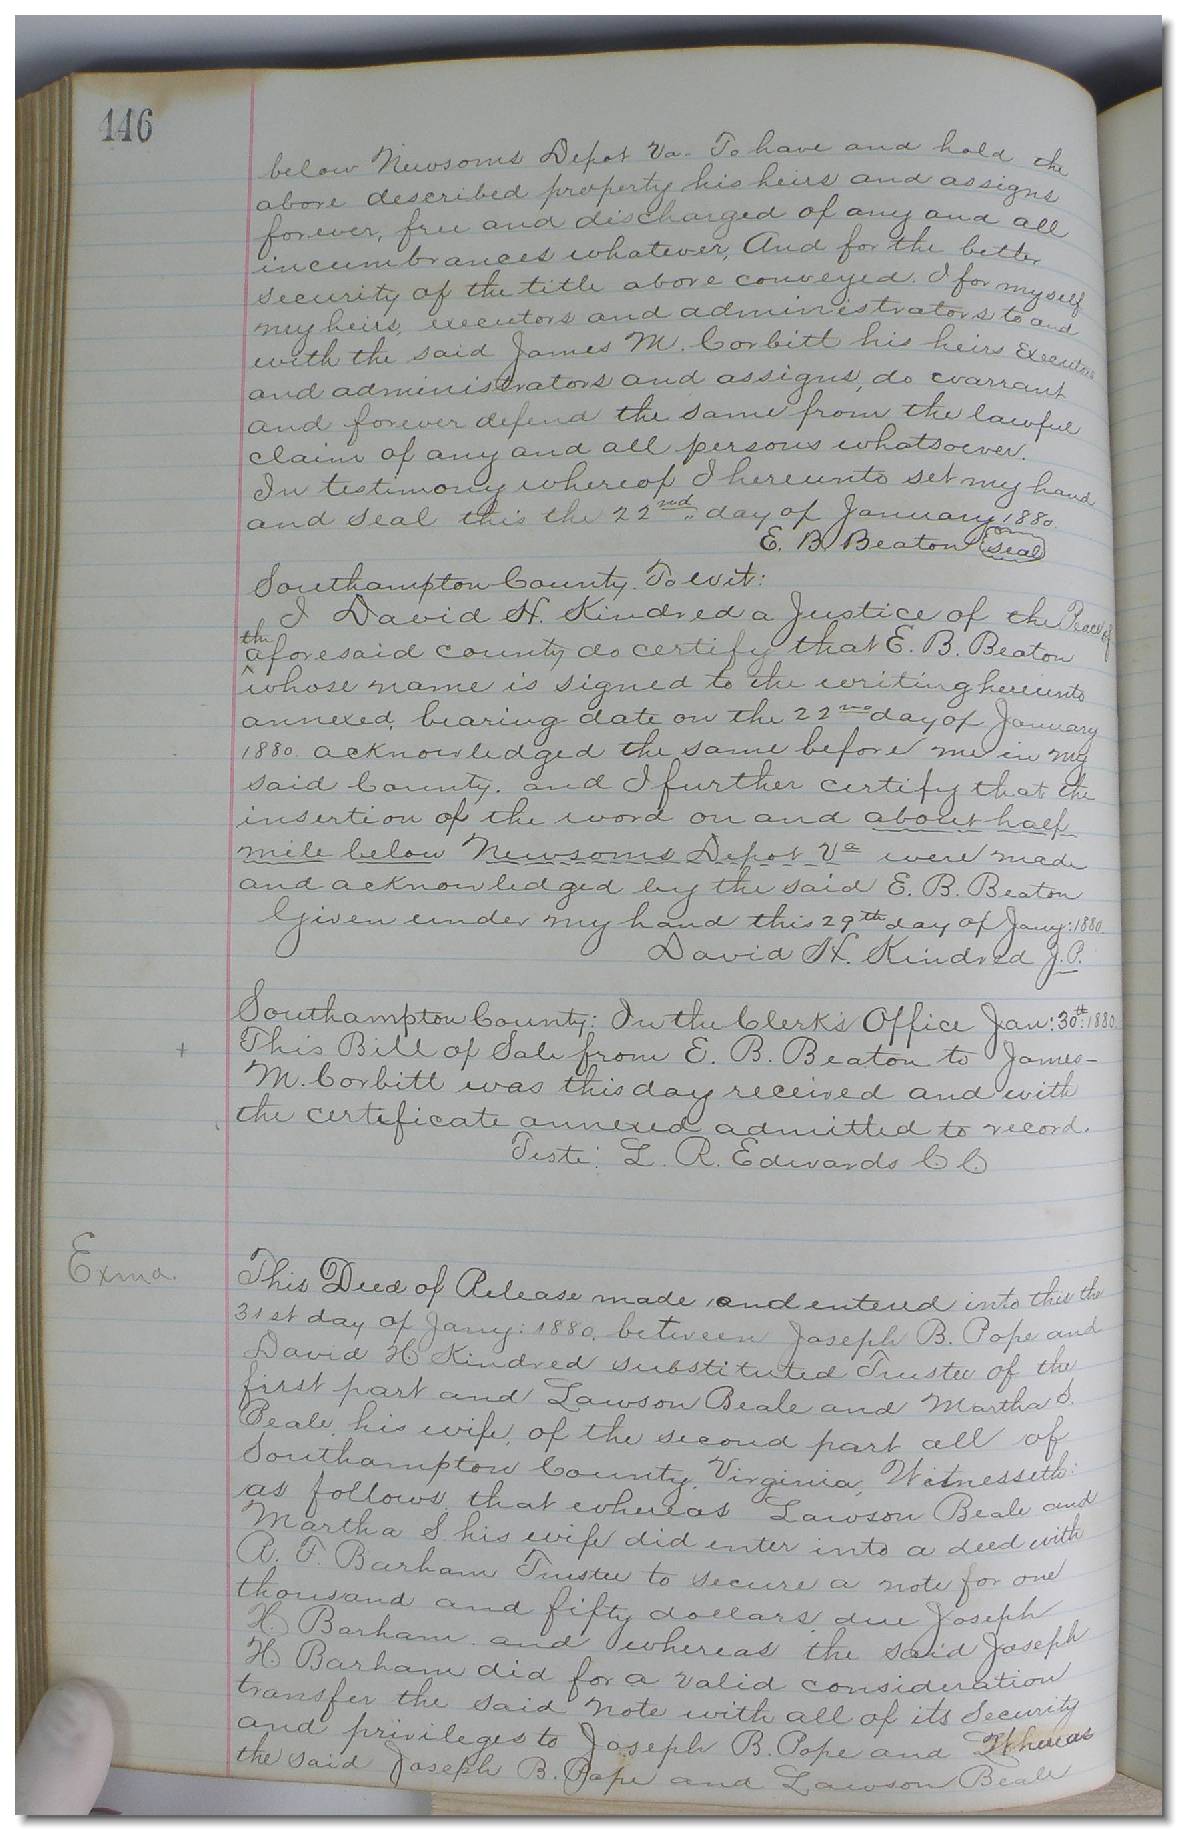 446
below Newsoms Depot Va. To have and hold the
above described property his heirs and assigns
forever, free and discharged of any and all
incumbrances whatever, And for the better
security of the title above conveyed. I for myself
my heirs, executors and administrators to and
with the said James M. Corbitt his heirs Executors
and administrators and assigns, do warrant
and forever defend the same from the lawful
claim of any and all persons whatsoever.
In testimony whereof I hereunto set my hand
and seal this the 22nd day of January 1880.
E. B. Beaton seal
Southampton County. To wit:
I David H. Kindred a Justice of the Peace of
the
aforesaid county do certify that E. B. Beaton
whose name is signed to the writing hereunto
annexed, bearing date on the 22nd day of January
1880. acknowledged the same before me in my
said County. and I further certify that the
insertion of the word on and about half
mile below Newsoms Depot Va were made
and acknowledged by the said E. B. Beaton
Given under my hand this 29th day of Jany: 1880.
David H. Kindred J.P.
Southampton County: In the Clerk's Office Jan: 30th: 1880.
This Bill of Sale from E. B. Beaton to James-
M. Corbitt was this day received and with
the certificate annexed admitted to record.
Teste: L. R. Edwards C C
Exma.
This Deed of Release made and entered into this the
31st day of Jany: 1880, between Joseph B. Pope and
David H Kindred substituted Trustee of the
first part and Lawson Beale and Martha S.
Beale, his wife, of the second part all of
Southampton County, Virginia, Witnesseth:
as follows, that whereas Lawson Beale and
Martha S. his wife did enter into a deed with
A. F. Barham Trustee to secure a note for one
thousand and fifty dollars, due Joseph
H. Barham and whereas the said Joseph
H. Barham did for a valid consideration
transfer the said note with all of its security
and privileges to Joseph B. Pope and Whereas
the said Joseph B. Pope and Lawson Beale